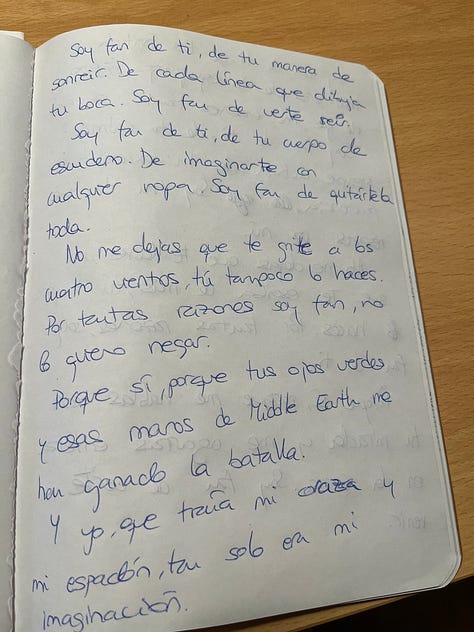 Soy fan de ti, de tu manera de
sonreir. De cada línea que dibuja
tu boca. Soy fan de verte reír.
Soy fan de ti, de tu cuerpo de
escudero. De imaginarte con
cualquier ropa. Soy fan de quitártela
toda.
No me dejas que te grite a los
cuatro vientos, tú tampoco lo haces.
Por tantas razones soy fan, no
lo quiero negar.
Porque sí, porque tus ojos verdes
y esas manos de Middle Earth me
han ganado la batalla.
Y yo, que traía mi coraza y
mi espadón, tan solo era mi
imaginación.